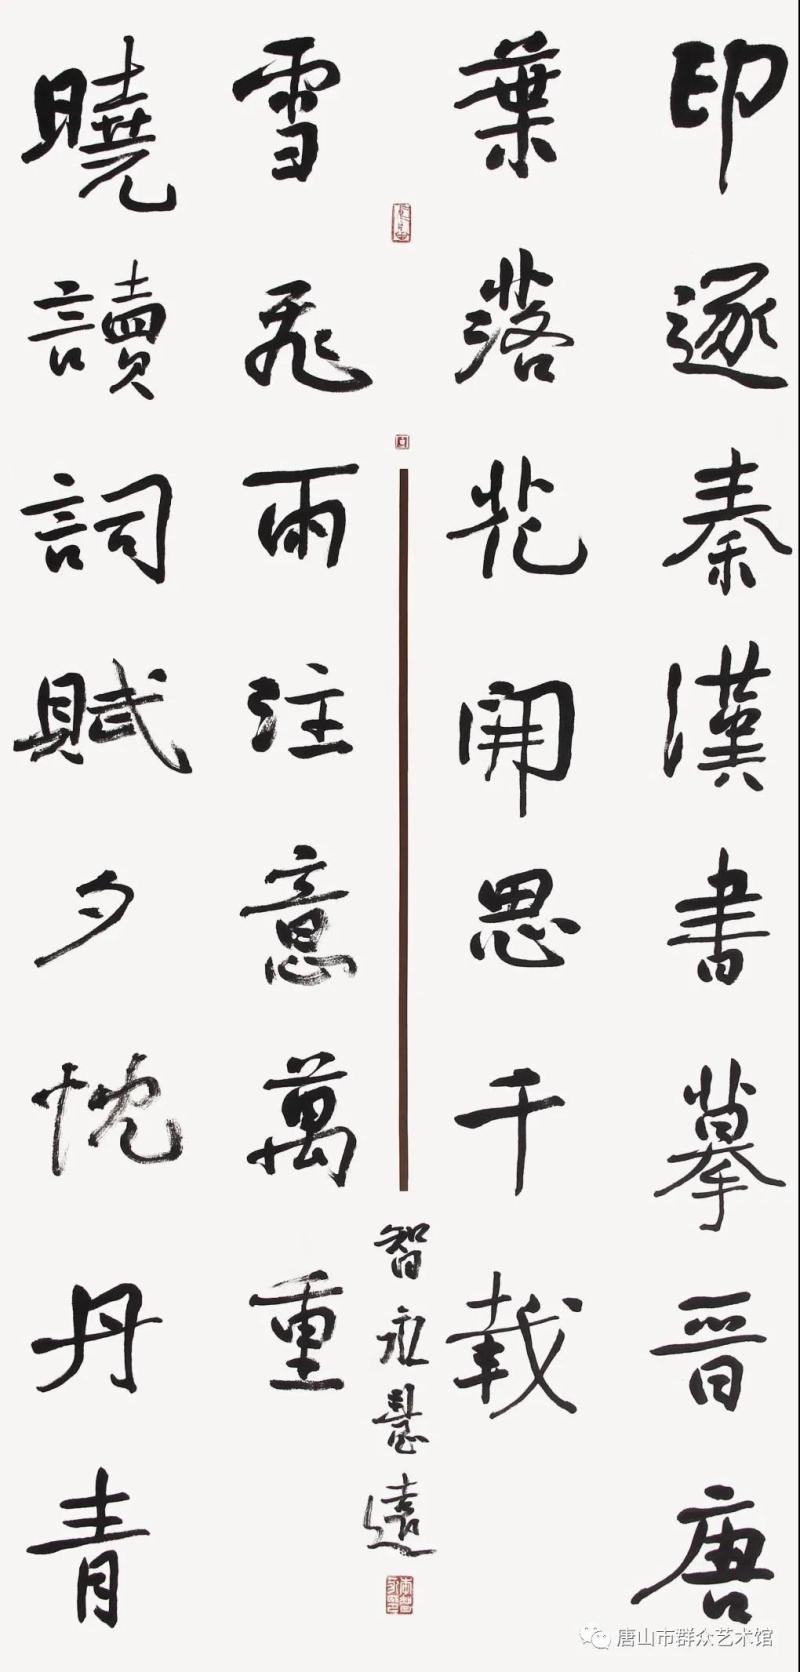 印逐秦漢書摹晋唐
葉落花開思千載
曉讀詞賦夕忱丹青
雪飛雨注意萬重
智永慧遠
唐山市群众艺术馆